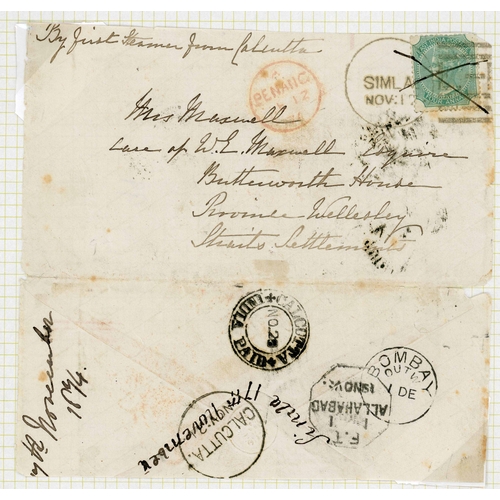 By first Steamer from Calcutta
PENANG
12
SIMLA
NOV: 17
Mrs Maxwell
care of W.E. Maxwell Esquire
Butterworth House
Province Wellesley
Straits Settlements
CALCUTTA
INDIA PAID
NO.23
BOMBAY
OUT
1 DE
F.T.
ALLAHABAD
19 NOV
CALCUTTA
NOV
Simla 17th November
November
1874.